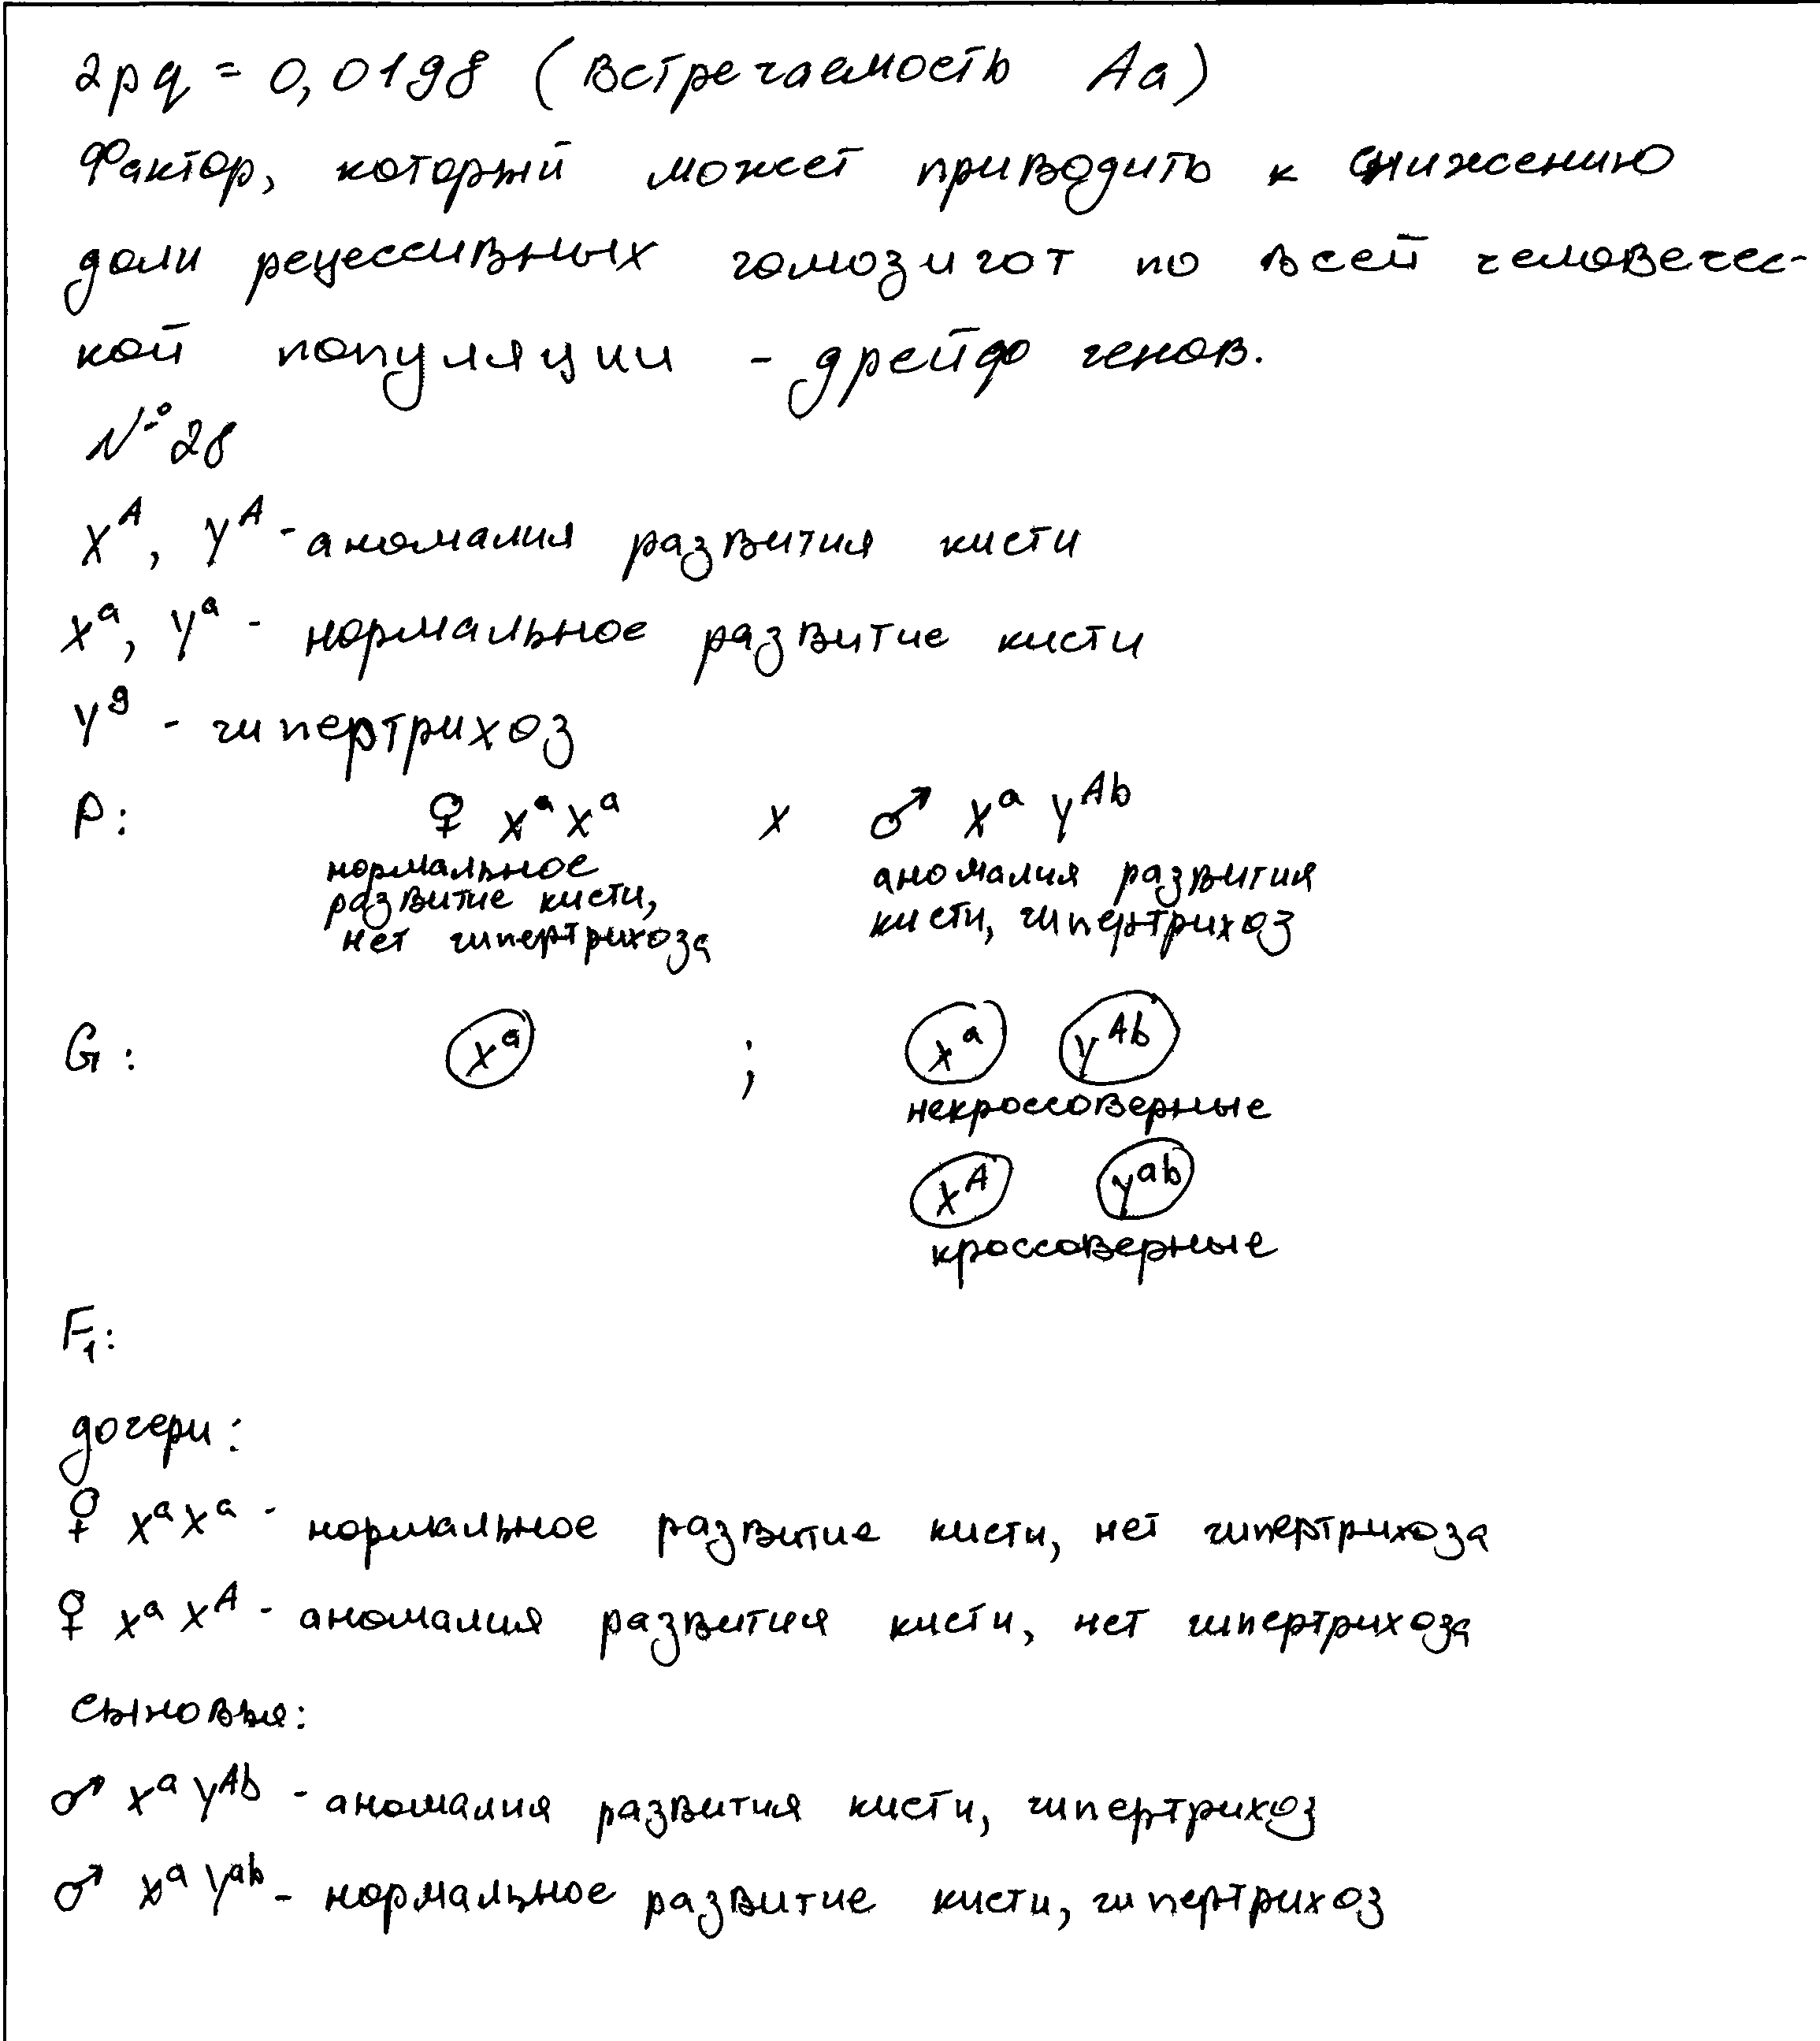 2pq = 0,0198 (встречаемость Aa)
Фактор, который может приводить к снижению
доли рецессивных гомозигот по всей человечес-
кой популяции - дрейф генов.
№ 28
X^A, Y^A - аномалия развития кисти
X^a, Y^a - нормальное развитие кисти
Y^g - гипертрихоз
P: ♀ X^a X^a x ♂ X^a Y^Ab
нормальное развитие кисти, нет гипертрихоза
аномалия развития кисти, гипертрихоз
G: X^a ; X^a Y^Ab
некроссоверные
X^A Y^ab
кроссоверные
F1:
дочери:
♀ X^a X^a - нормальное развитие кисти, нет гипертрихоза
♀ X^a X^A - аномалия развития кисти, нет гипертрихоза
сыновья:
♂ X^a Y^Ab - аномалия развития кисти, гипертрихоз
♂ X^a Y^ab - нормальное развитие кисти, гипертрихоз